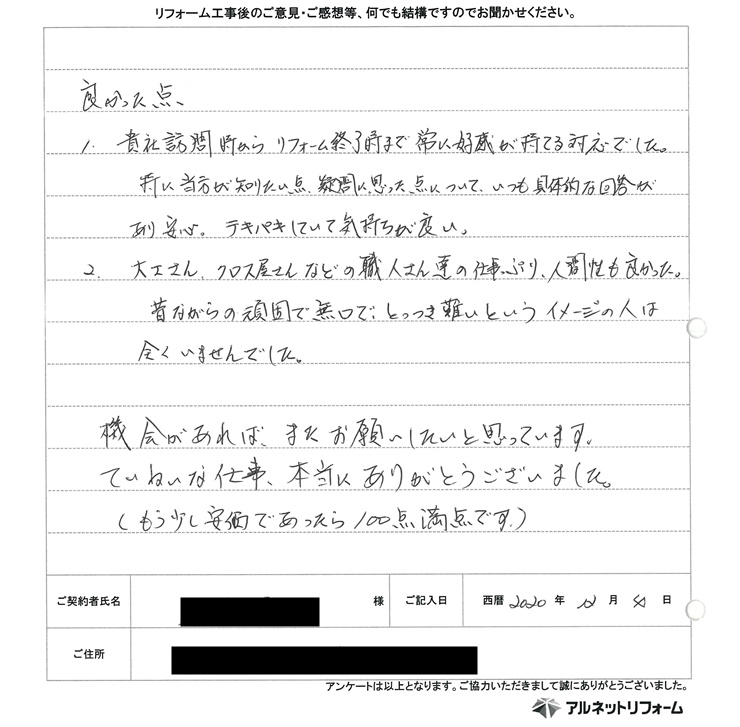 リフォーム工事後のご意見・ご感想等、何でも結構ですのでお聞かせください。
良かった点、
1. 貴社訪問時から リフォーム終了時まで 常に好感が持てる対応でした。
特に当方が知りたい点、疑問に思った点について、いつも具体的な回答が
あり安心。テキパキしていて気持ちが良い。
2. 大工さん、クロス屋さんなどの職人さん達の仕事ぶり、人間性も良かった。
昔ながらの頑固で無口で、とっつき難いという イメージの人は
全くいませんでした。
機会があれば、またお願いしたいと思っています。
ていねいな仕事、本当にありがとうございました。
(もう少し安価であったら100点満点です。)
ご契約者氏名 様 ご記入日 西暦 2020 年 12 月 日
ご住所
アンケートは以上となります。ご協力いただきまして誠にありがとうございました。
アルネットリフォーム